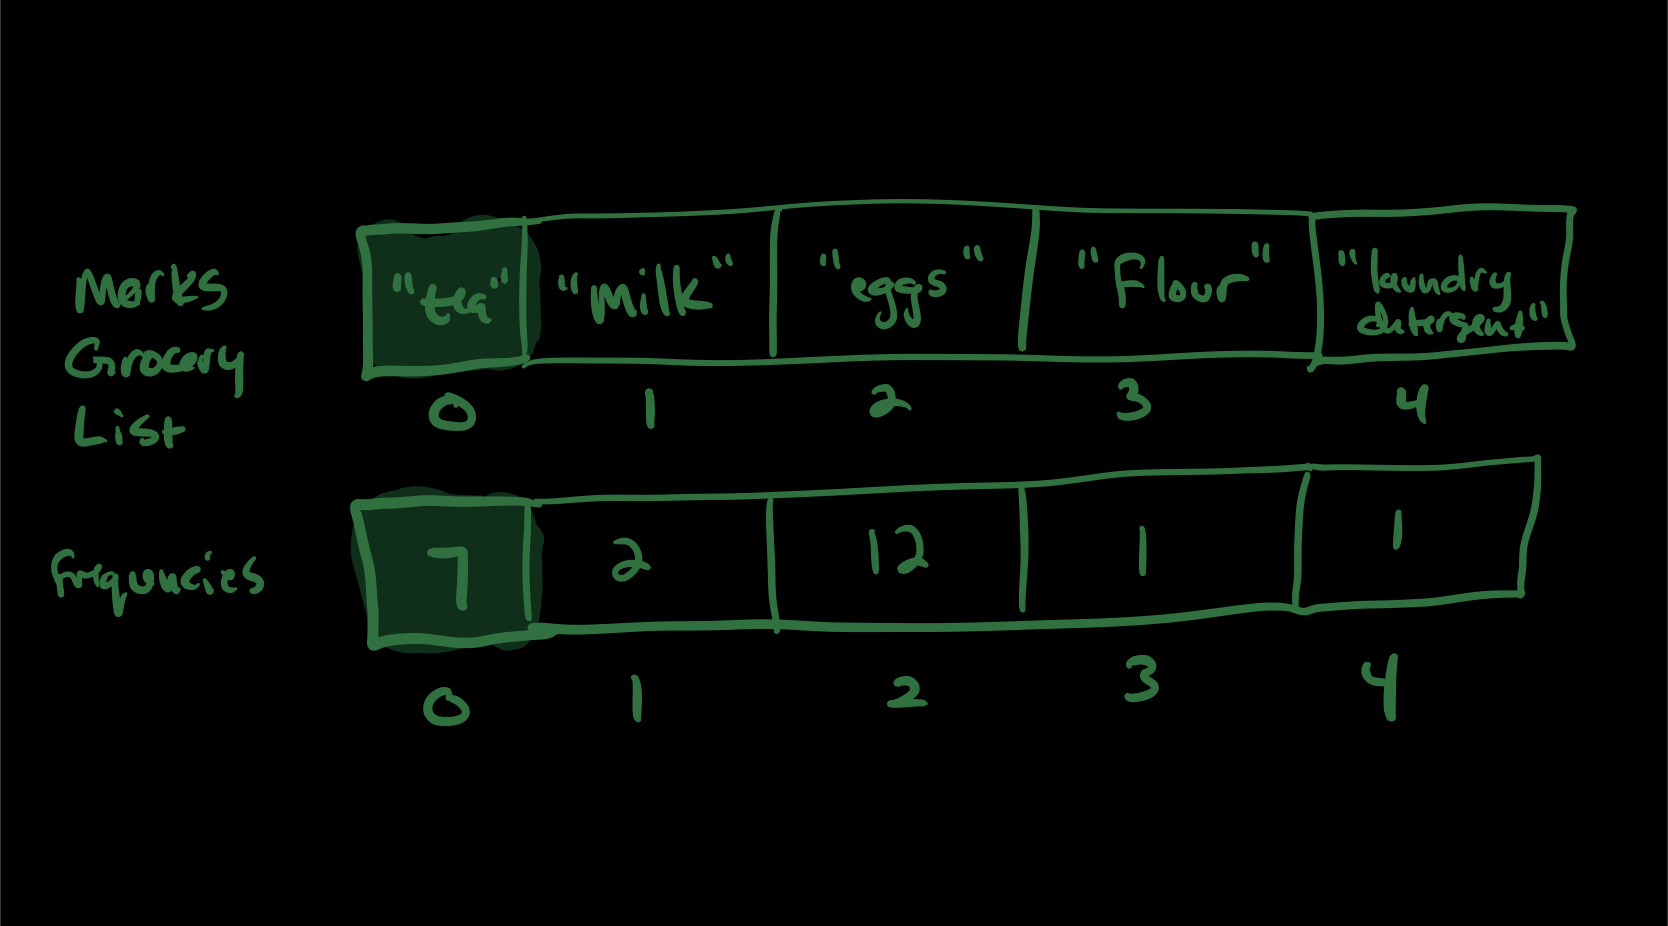 Marks
Grocery
List
"tea" "milk" "eggs" "Flour" "laundry
detergent"
0 1 2 3 4
frequencies
7 2 12 1 1
0 1 2 3 4